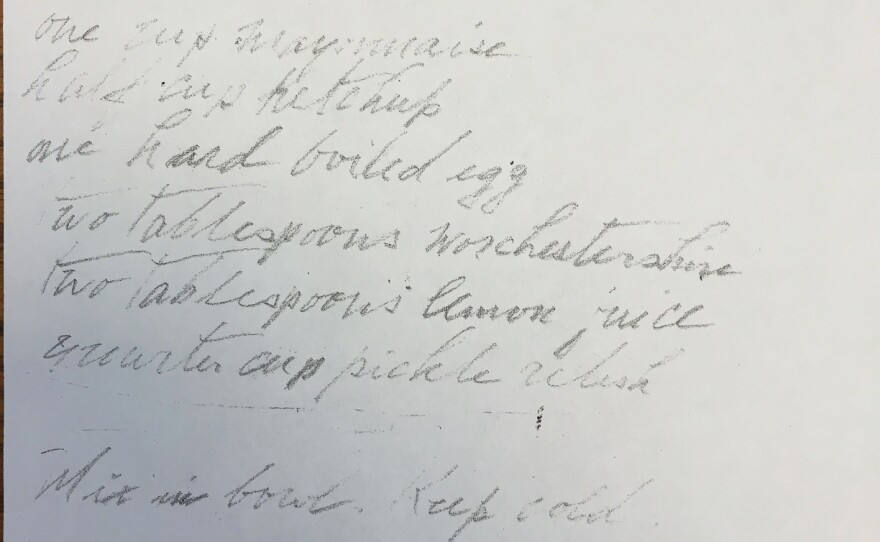 one cup mayonnaise
half cup ketchup
one hard boiled egg
two Tablespoons Worchestershire
two Tablespoons lemon juice
quarter cup pickle relish
Mix in bowl. Keep cold.